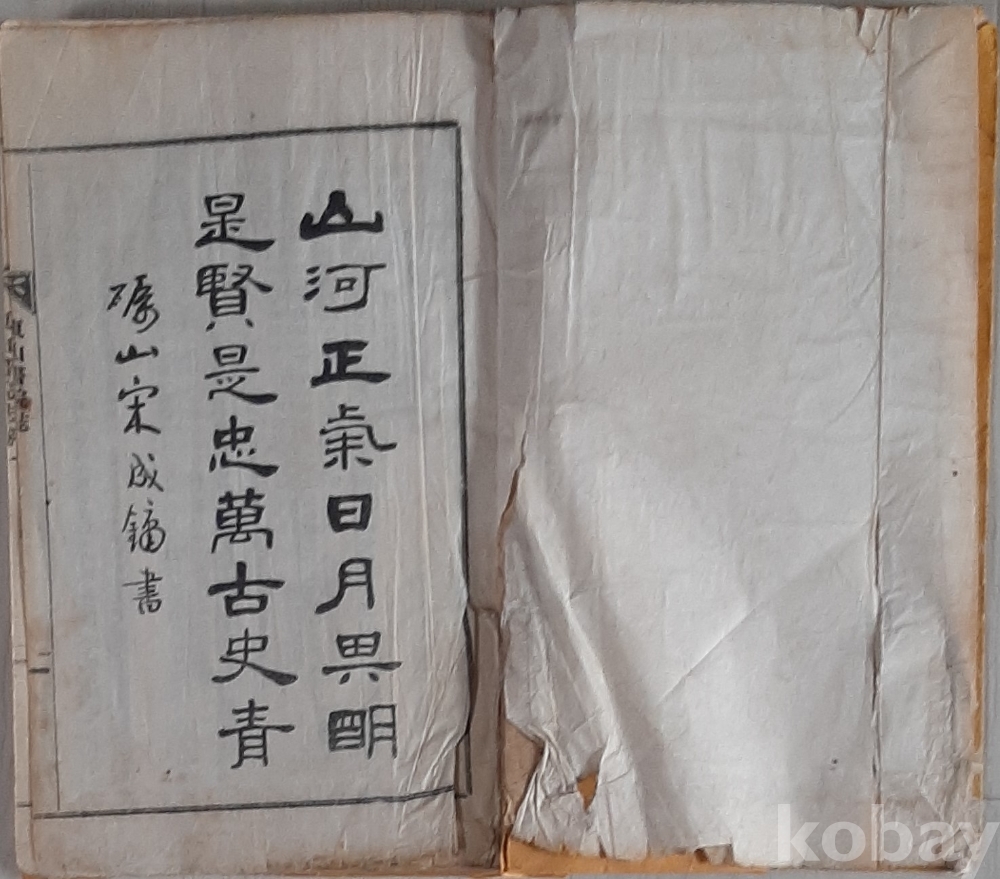 山河正氣日月異明
是賢是忠萬古史青
礪山宋成鏞書
kobay